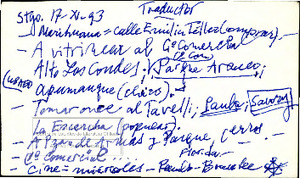 Stgo. 17-XI-93 Traductor
- Marihuana = calle Emilia Téllez (comprar)
- A vitrinear al Cº Comercial
Alto Las Condes, Parque Arauco,
Apumanque (chico).
- Tomar once al Tavelli, Paula, Savory
La Escarcha (popular)
- A Plaza de Armas y Parque cerros
Cº Comercial Florida
- Cine = miércoles -